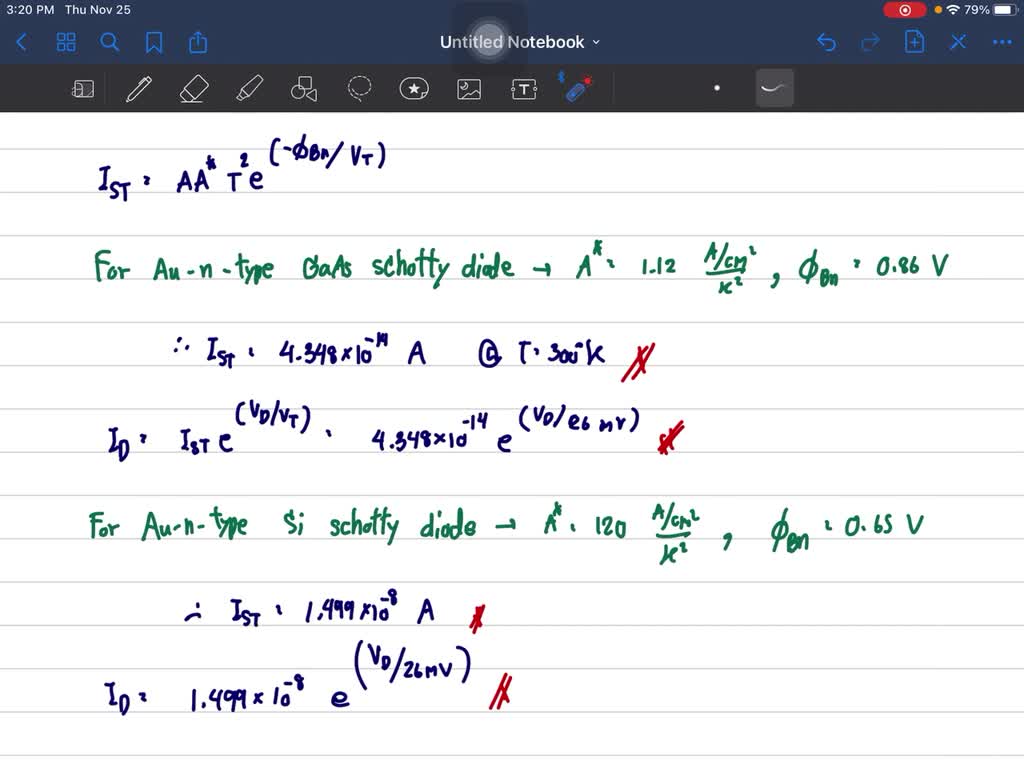 3:20 PM Thu Nov 25
79%
Untitled Notebook
I_ST = AA* T² e^(-ϕBn/V_T)
For Au-n-type GaAs schotty diode → A* = 1.12 A/cm²/K², ϕBn = 0.86 V
∴ I_ST = 4.348×10⁻¹⁴ A @ T = 300°K
I_D = I_ST e^(V_D/V_T) = 4.348×10⁻¹⁴ e^(V_D/26 mV)
For Au-n-type Si schotty diode → A* = 120 A/cm²/K², ϕBn = 0.65 V
∴ I_ST = 1.499×10⁻⁸ A
I_D = 1.499×10⁻⁸ e^(V_D/26mV)